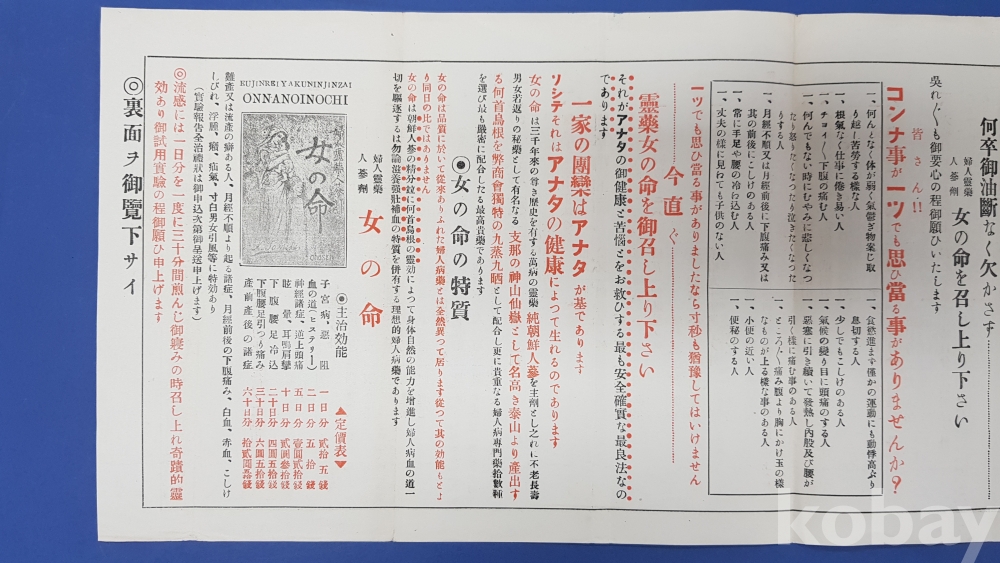 何卒御油斷なく欠かさず
婦人靈藥
人蔘劑
女の命を召し上り下さい
吳れ〲も御要心の程御願ひいたします
皆さん!!
コンナ事が一ツでも思ひ當る事がありませんか?
一、何んとなく体が弱く氣鬱ぎ物案じ取
り越し苦勞する樣な人
一、根氣なく仕事に倦き易い人
一、チョイ〱下腹の痛む人
一、何んでもない時にむやみに悲しくなつ
たり怒りたくなつたり泣きたくなつた
りする人
一、月經不順又は月經前後に下腹痛み又は
其の前後にこしけのある人
一、常に手足や腰の冷わ込む人
一、丈夫の樣に見わても子供のない人
一、食慾進まず僅かの運動にも動悸高ぶり
息切する人
一、少しでもこしけのある人
一、氣候の變り目に頭痛のする人
一、惡寒に引き續いて發熱し內股及び腰が
引く樣に痛む事のある人
一、ところ〲痛み腹より胸にかけ玉の樣
なものが上る樣な事のある人
一、小便の近い人
一、便秘のする人
一ッでも思ひ當る事がありましたなら寸秒も猶豫してはいけません
今直ぐ
靈藥女の命を御召し上り下さい
それがアナタの御健康と苦惱とをお救ひする最も安全確實な最良法なの
であります
一家の團欒はアナタが基であります
ソシテそれはアナタの健康によつて生れるのであります
女の命は三千年來の尊き歷史を有する萬病の靈藥純朝鮮人蔘を主劑とし之れに不老長壽
男女若返りの秘藥として有名なる支那の神山仙嶽として名高き泰山より產出す
る何首烏根を弊商會獨特の九蒸九晒として配合し更に貴重なる婦人病專門藥拾數種
を選び最も嚴密に配合したる最高貴藥であります
◉女の命の特質
女の命は品質に於いて從來ありふれた婦人病藥とは全然異つて居ります從つて其の効能もとよ
り同日の比ではありません
女の命は朝鮮人蔘の精分竝に何首烏根の靈効によつて身体自然の能力を增進し婦人病血の道一
切を驅逐するは勿論滋養强壯補血の特質を併有する理想的婦人病藥であります
婦人靈藥
人蔘劑
女の命
◉主治効能
子宮病、惡阻
血の道(ヒステリー)
神經諸症、逆上頭痛
眩暈、耳鳴肩攣
下腹腰足冷込
下腹腰足引つり痛み
產前產後の諸症
▲定價表▼
一日分 貳拾五錢
二日分 五拾錢
五日分 壹圓貳拾錢
十日分 貳圓參拾錢
二十日分 四圓五拾錢
三十日分 六圓五拾錢
六十日分 拾貳圓
KUJINREIYAKUNINJINZAI
ONNANOINOCHI
女の命
難產又は流產の癖ある人、月經不順より起る諸症、月經前後の下腹痛み、白血、赤血、こしけ
しびれ、浮腫、癪、疝氣、寸白男女引風等に特効あり
(實驗報告全治禮狀は御申込次第御呈送申上げます)
◎流感には一日分を一度に三十分間煎じ御寢みの時召し上れ奇蹟的靈
効あり御試用實驗の程御願ひ申上げます
◎裏面ヲ御覽下サイ
kobay